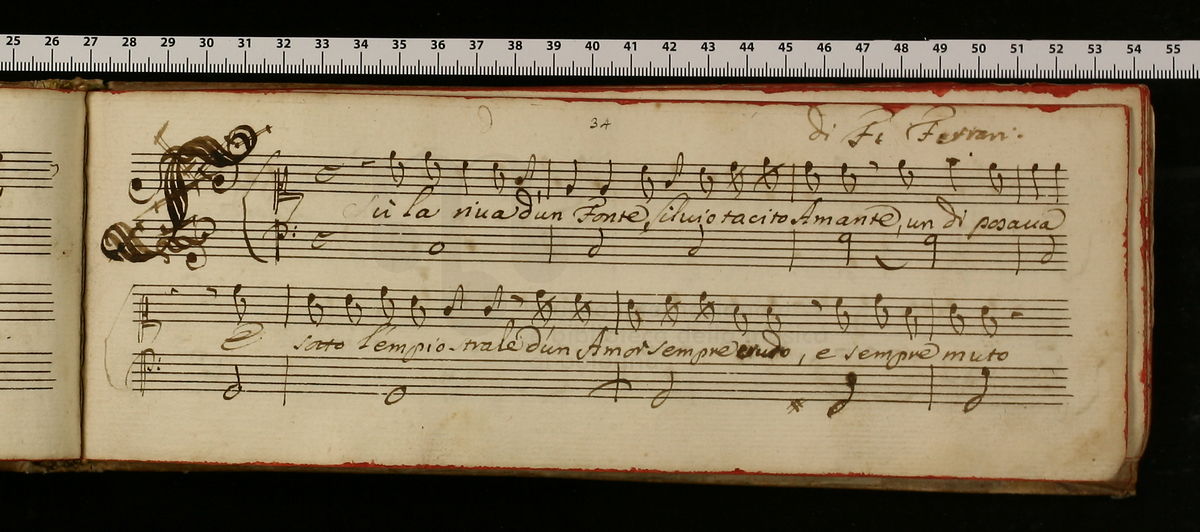 25 26 27 28 29 30 31 32 33 34 35 36 37 38 39 40 41 42 43 44 45 46 47 48 49 50 51 52 53 54 55
34
di Fi Ferrari.
Sù la riua d'un Fonte, siluio tacito Amante, un di posaua
E sotto l'empio strale d'un Amor sempre crudo, e sempre muto